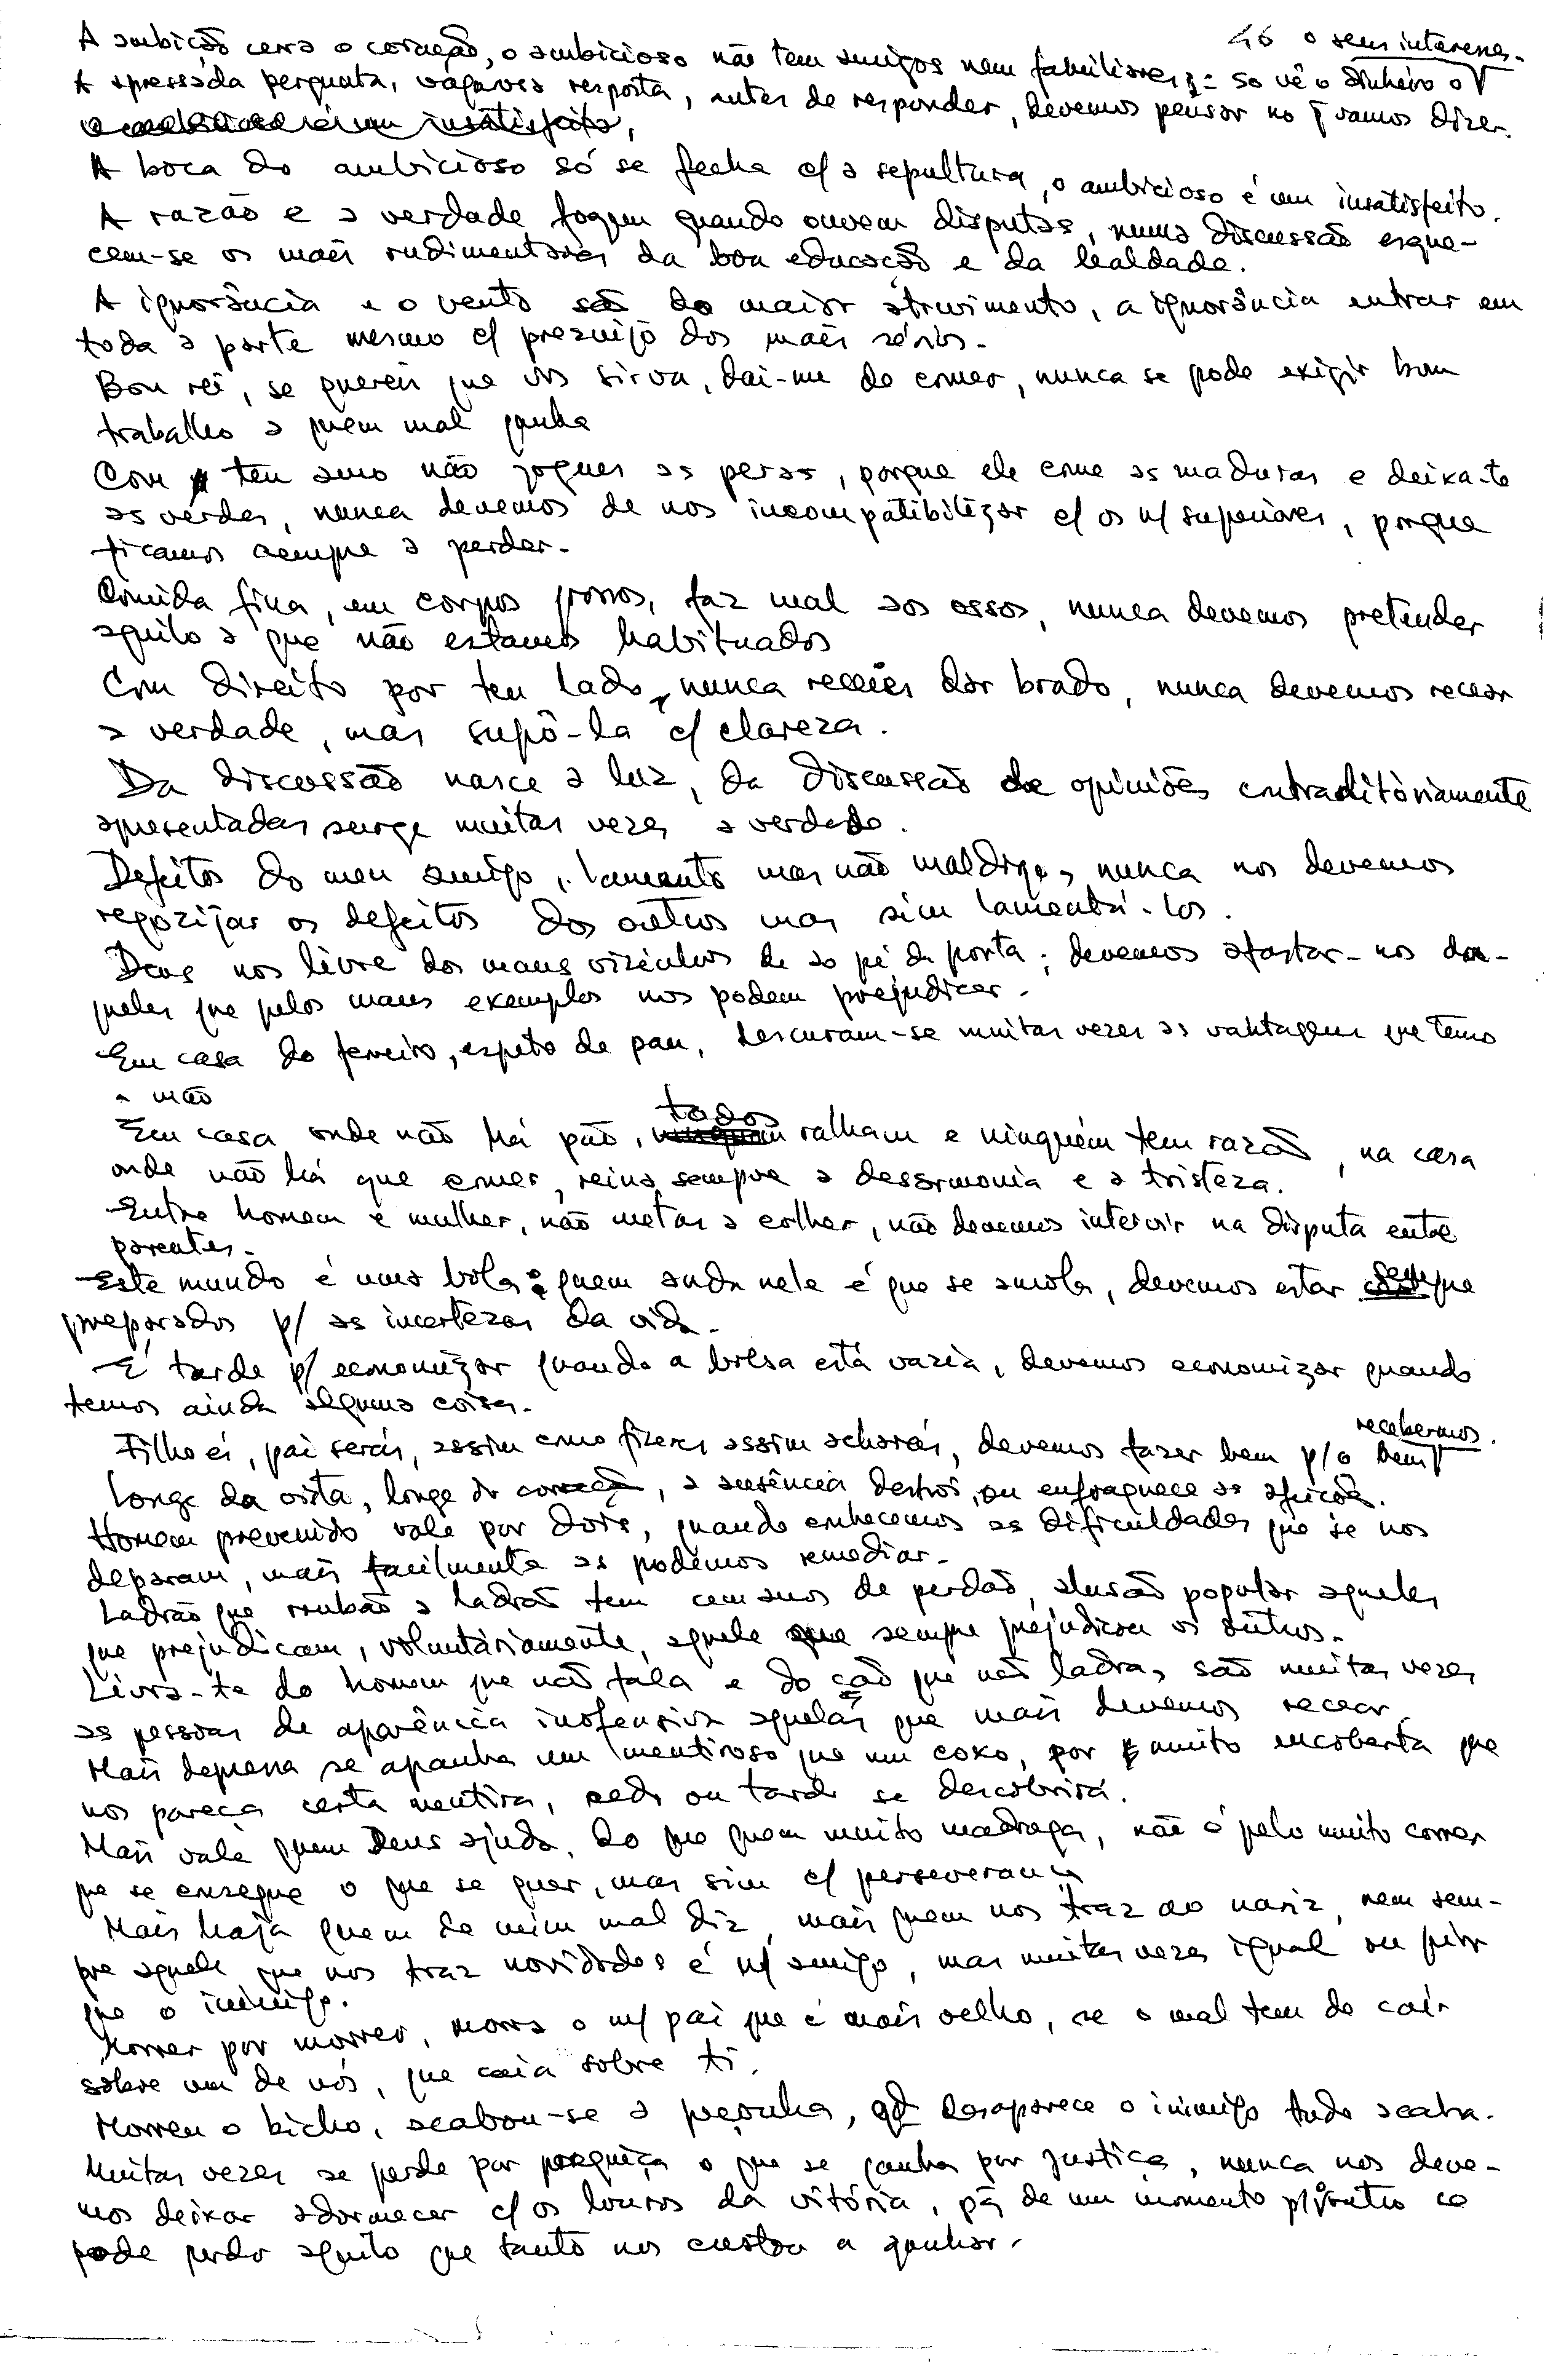 A ambição cerra o coração, o ambicioso não tem amigos nem familiares; só vê o dinheiro o seu interesse.
A apressada pergunta, vagarosa resposta, antes de responder, devemos pensar no q vamos dizer.
O ambicioso é um insatisfeito,
A boca do ambicioso só se fecha c/ a sepultura, o ambicioso é um insatisfeito.
A razão e a verdade fogem quando ouvem disputas, numa discussão esque-
cem-se os mais rudimentares da boa educação e da lealdade.
A ignorância e o vento são do maior atrevimento, a ignorância entrar em
toda a parte mesmo c/ prezuijo dos mais sérios.
Bom rei, se quereis que vos sirva, dai-me de comer, nunca se pode exigir bom
trabalho a quem mal ganha
Com teu amo não jogues as peras, porque ele come as maduras e deixa-te
as verdes, nunca devemos de nos incompatibilizar c/ os n/ superiores, porque
ficamos sempre a perder.
Comida fina, em corpos grossos, faz mal aos ossos, nunca devemos pretender
aquilo a que não estamos habituados
Com direito por teu lado, nunca receies dar brado, nunca devemos recear
a verdade, mas supô-la c/ clareza.
Da discussão nasce a luz, da discussão de opiniões contraditòriamente
apresentadas surge muitas vezes a verdade.
Defeitos do meu amigo, lamento mas não maldigo, nunca nos devemos
regozijar os defeitos dos outros mas sim lamentá-los.
Deus nos livre dos maus vizinhos de ao pé da porta; devemos afastar-nos da-
queles que pelos maus exemplos nos podem prejudicar.
Em casa do ferreiro, espeto de pau, descuram-se muitas vezes as vantagens que temos
a mão
Em casa onde não há pão, todos ralham e ninguém tem razão, na casa
onde não há que comer, reina sempre a desarmonia e a tristeza.
Entre homem e mulher, não metas a colher, não devemos intervir na disputa entre
parentes.
Este mundo é uma bola: quem anda nele é que se amola, devemos estar sempre
preparados p/ as incertezas da vida.
É tarde p/ economizar quando a bolsa está vazia, devemos economizar quando
temos ainda alguma coisa.
Filho és, pai serás, assim como fizeres assim acharás, devemos fazer bem p/ o bem recebermos.
Longe da vista, longe do coração, a ausência destroi, ou enfraquece as afeições.
Homem prevenido vale por dois, quando conhecemos as dificuldades que se nos
deparam, mais facilmente as podemos remediar.
Ladrão que roubão a ladrão tem cem anos de perdão, alusão popular aqueles
que prejudicam, voluntàriamente, aquele que sempre prejudicou os outros.
Livra-te do homem que não fala e do cão que não ladra, são muitas vezes
as pessoas de aparência inofensiva aquelas que mais devemos recear.
Mais depressa se apanha um mentiroso que um coxo, por muito encoberta que
nos pareça certa mentira, cedo ou tarde se descobrirá.
Mais vale quem Deus ajuda, do que quem muito madruga, não é pelo muito correr
que se consegue o que se quer, mas sim c/ perseverança
Mais haja quem de mim mal diz, mais quem nos traz ao nariz, nem sem-
pre aquele que nos traz novidades é n/ amigo, mas muitas vezes igual ou pior
que o inimigo.
Morrer por morrer, morra o m/ pai que é mais velho, se o mal tem de cair
sôbre um de nós, que caia sobre ti.
Morreu o bicho, acabou-se a peçonha, qd desaparece o inimigo tudo acaba.
Muitas vezes se perde por preguiça o que se ganha por justiça, nunca nos deve-
mos deixar adormecer c/ os louros da vitória, pq de um momento p/ outro se
pode perder aquilo que tanto nos custou a ganhar.